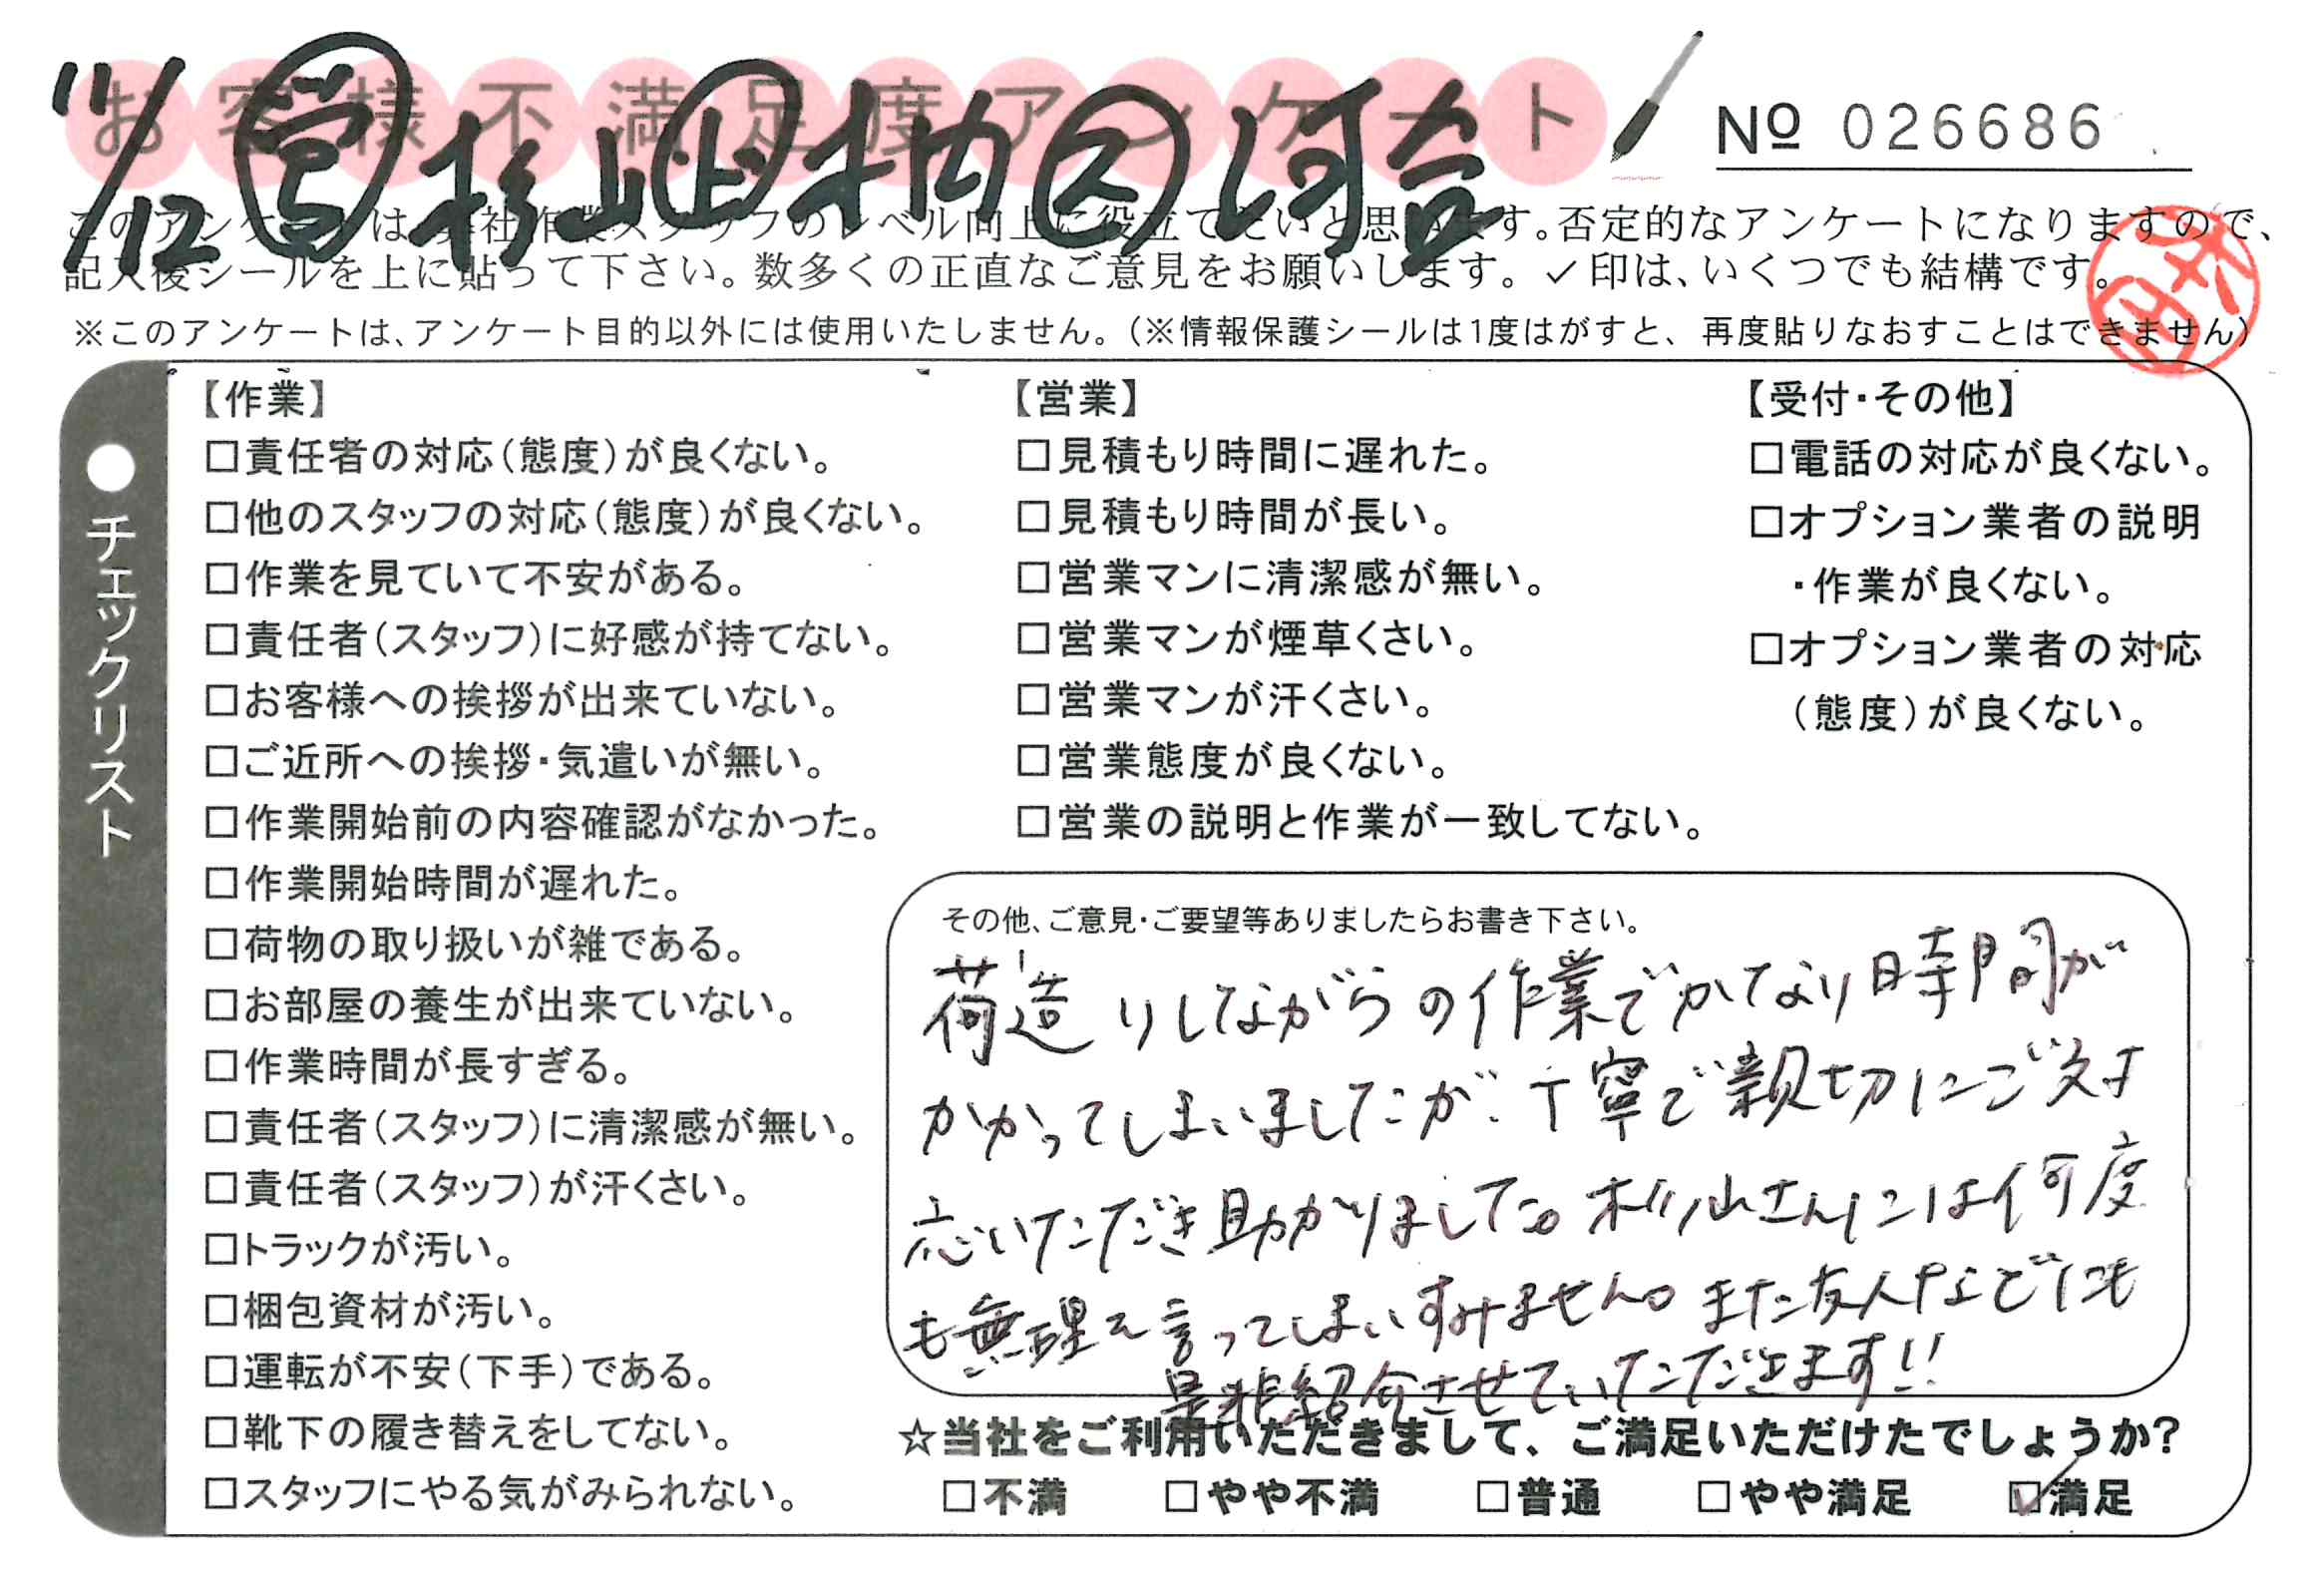 お客様不満足度アンケート
11/12 営 杉山 上 木内 2 河合
№ 026686
このアンケートは、弊社作業スタッフのレベル向上に役立てたいと思います。否定的なアンケートになりますので、
記入後シールを上に貼って下さい。数多くの正直なご意見をお願いします。✓印は、いくつでも結構です。
※このアンケートは、アンケート目的以外には使用いたしません。(※情報保護シールは1度はがすと、再度貼りなおすことはできません)
●チェックリスト
【作業】
□責任者の対応(態度)が良くない。
□他のスタッフの対応(態度)が良くない。
□作業を見ていて不安がある。
□責任者(スタッフ)に好感が持てない。
□お客様への挨拶が出来ていない。
□ご近所への挨拶・気遣いが無い。
□作業開始前の内容確認がなかった。
□作業開始時間が遅れた。
□荷物の取り扱いが雑である。
□お部屋の養生が出来ていない。
□作業時間が長すぎる。
□責任者(スタッフ)に清潔感が無い。
□責任者(スタッフ)が汗くさい。
□トラックが汚い。
□梱包資材が汚い。
□運転が不安(下手)である。
□靴下の履き替えをしてない。
□スタッフにやる気がみられない。
【営業】
□見積もり時間に遅れた。
□見積もり時間が長い。
□営業マンに清潔感が無い。
□営業マンが煙草くさい。
□営業マンが汗くさい。
□営業態度が良くない。
□営業の説明と作業が一致してない。
【受付・その他】
□電話の対応が良くない。
□オプション業者の説明
・作業が良くない。
□オプション業者の対応
(態度)が良くない。
その他、ご意見・ご要望等ありましたらお書き下さい。
荷造りしながらの作業でかなり時間が
かかってしまいましたが、丁寧で親切にご対
応いただき助かりました。杉山さんには何度
も無理を言ってしまいすみません。また友人などにも
是非紹介させていただきます!!
☆当社をご利用いただきまして、ご満足いただけたでしょうか?
□不満 □やや不満 □普通 □やや満足 ☑満足